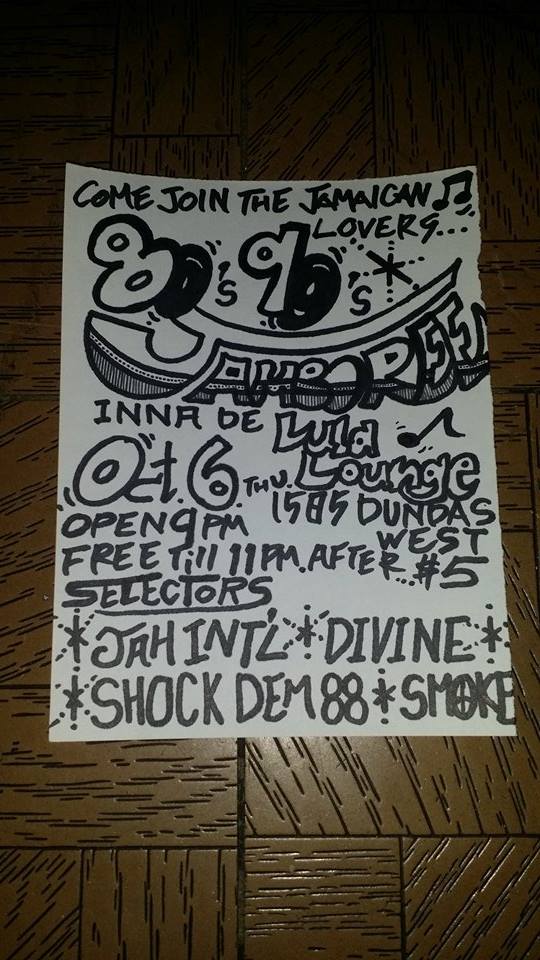 COME JOIN THE JAMAICAN
LOVERS...
80's 90's
JAMBOREE
INNA DE Lula
Lounge
Oct. 6 THU.
1585 DUNDAS
WEST
OPEN 9 PM
FREE Till 11 PM. AFTER... #5
SELECTORS
* JAH INT'L * DIVINE *
* SHOCK DEM 88 * SMOKE